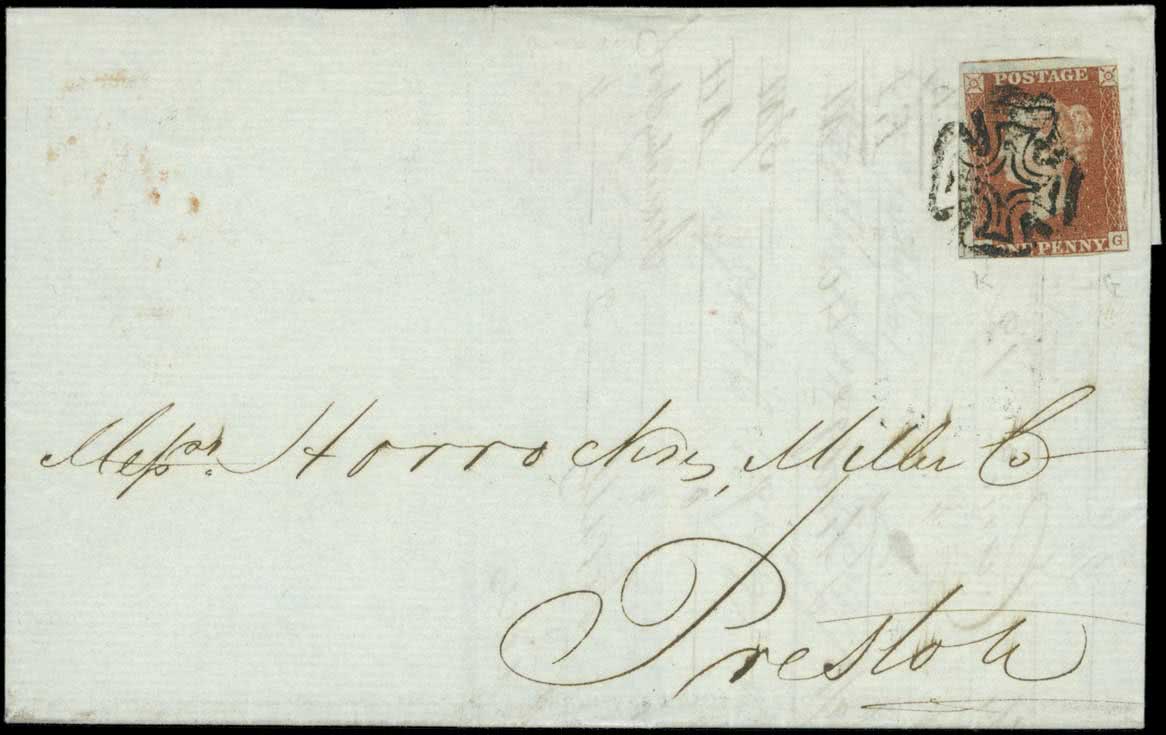 POSTAGE
ONE PENNY G
K G
Messrs. Horrockses, Miller Co
Preston